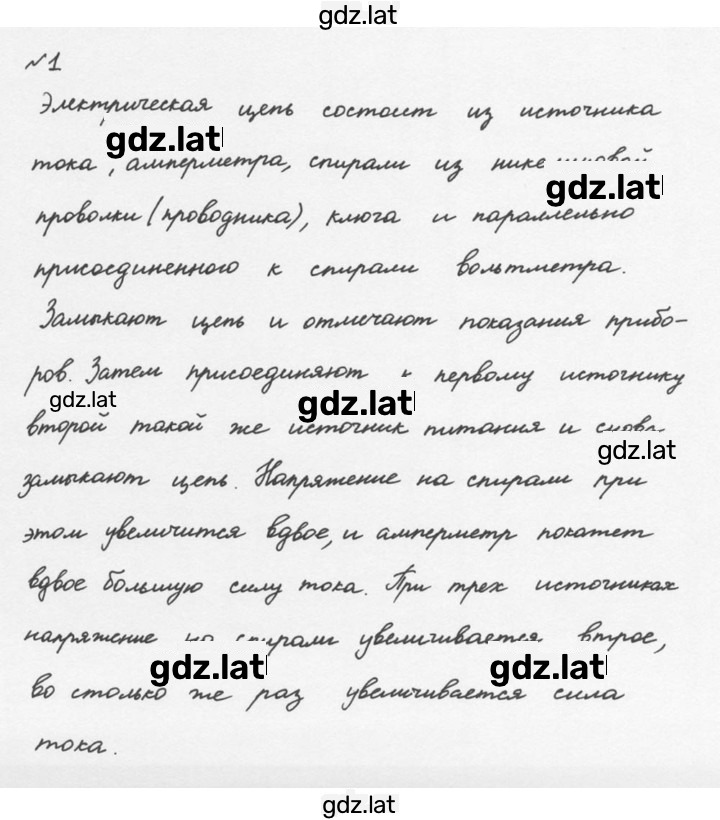 gdz.lat
№1
Электрическая цепь состоит из источника
gdz.lat
тока, амперметра, спирали из
gdz.lat
проволки (проводника), ключа и параллельно
присоединенного к спирали вольтметра.
Замыкают цепь и отмечают показания прибо-
ров. Затем присоединяют к первому источнику
gdz.lat
gdz.lat
второй такой же источник питания и снова
gdz.lat
замыкают цепь. Напряжение на спирали при
этом увеличится вдвое, и амперметр покажет
вдвое большую силу тока. При трех источниках
напряжение на спирали увеличивается втрое,
gdz.lat
gdz.lat
во столько же раз увеличивается сила
тока.
gdz.lat